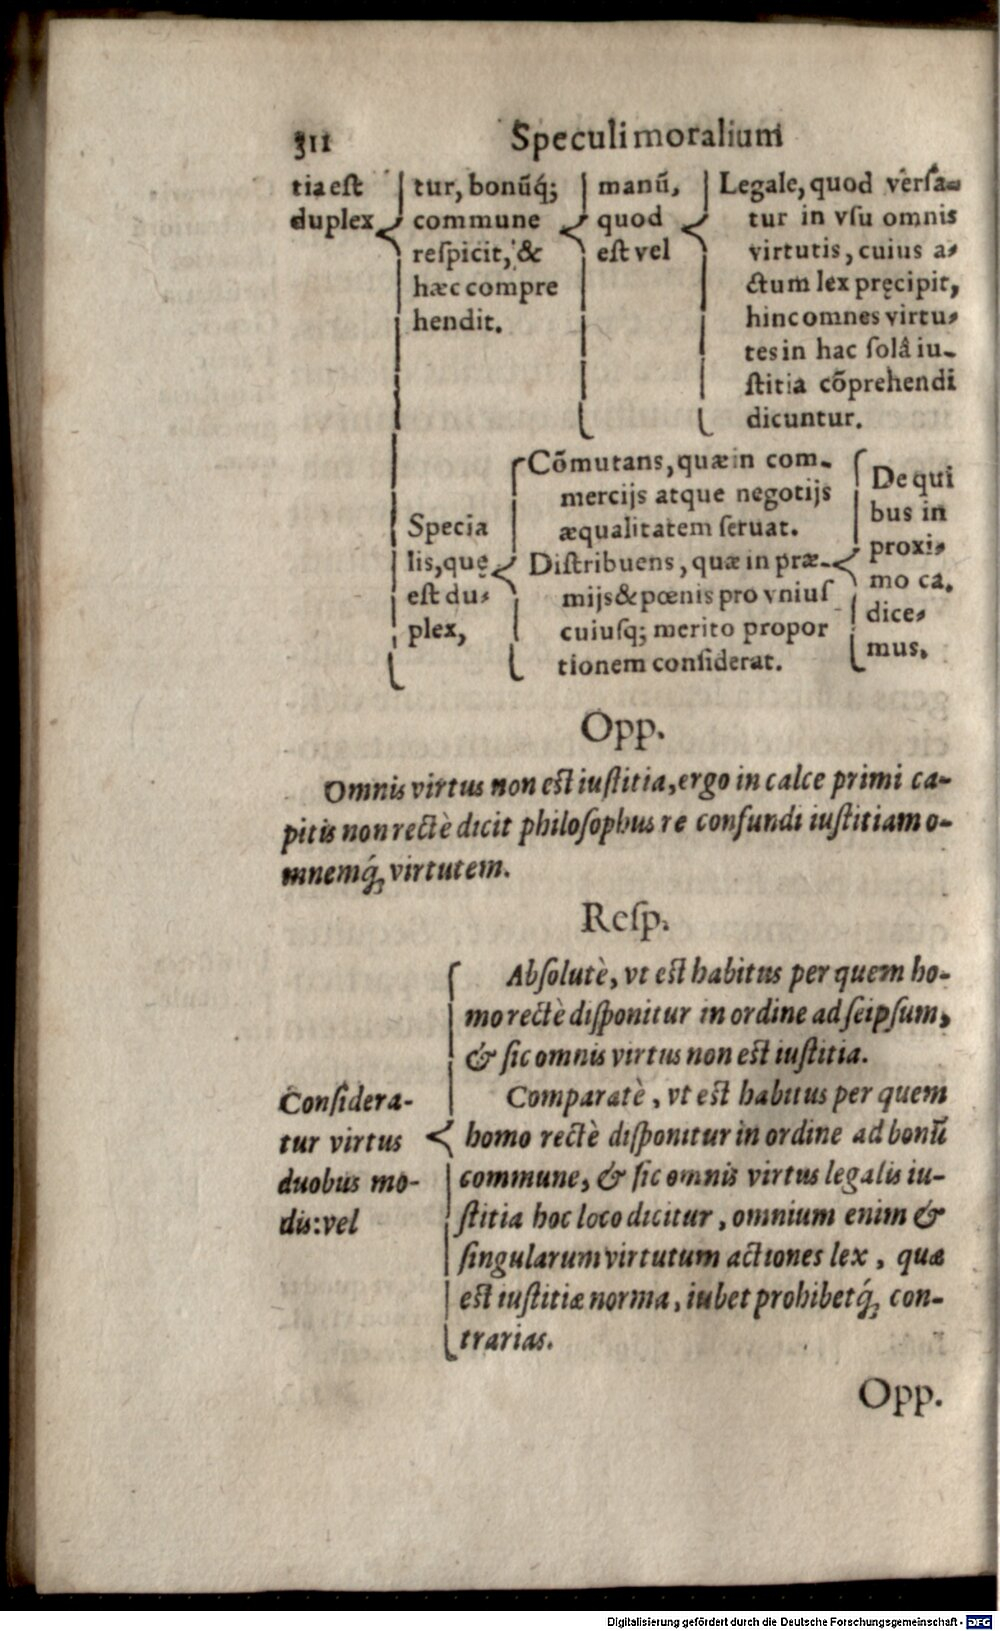 311
Speculi moralium
tia est
duplex
tur, bonũq́;
commune
respicit, &
hæc compre
hendit.
manũ,
quod
est vel
Legale, quod versa-
tur in vsu omnis
virtutis, cuius a-
ctum lex pręcipit,
hinc omnes virtu-
tes in hac solâ iu-
stitia cõprehendi
dicuntur.
Specia
lis, quę
est du-
plex,
Cõmutans, quæ in com-
mercijs atque negotijs
æqualitatem seruat.
Distribuens, quæ in præ-
mijs & pœnis pro vnius
cuiusq; merito propor
tionem considerat.
De qui
bus in
proxi-
mo ca.
dice-
mus.
Opp.
Omnis virtus non est iustitia, ergo in calce primi ca-
pitis non rectè dicit philosophus re confundi iustitiam o-
mnemq́; virtutem.
Resp.
Considera-
tur virtus
duobus mo-
dis: vel
Absolutè, vt est habitus per quem ho-
mo rectè disponitur in ordine ad seipsum,
& sic omnis virtus non est iustitia.
Comparatè, vt est habitus per quem
homo rectè disponitur in ordine ad bonũ
commune, & sic omnis virtus legalis iu-
stitia hoc loco dicitur, omnium enim &
singularum virtutum actiones lex, quæ
est iustitiæ norma, iubet prohibetq́; con-
trarias.
Opp.
Digitalisierung gefördert durch die Deutsche Forschungsgemeinschaft - DFG